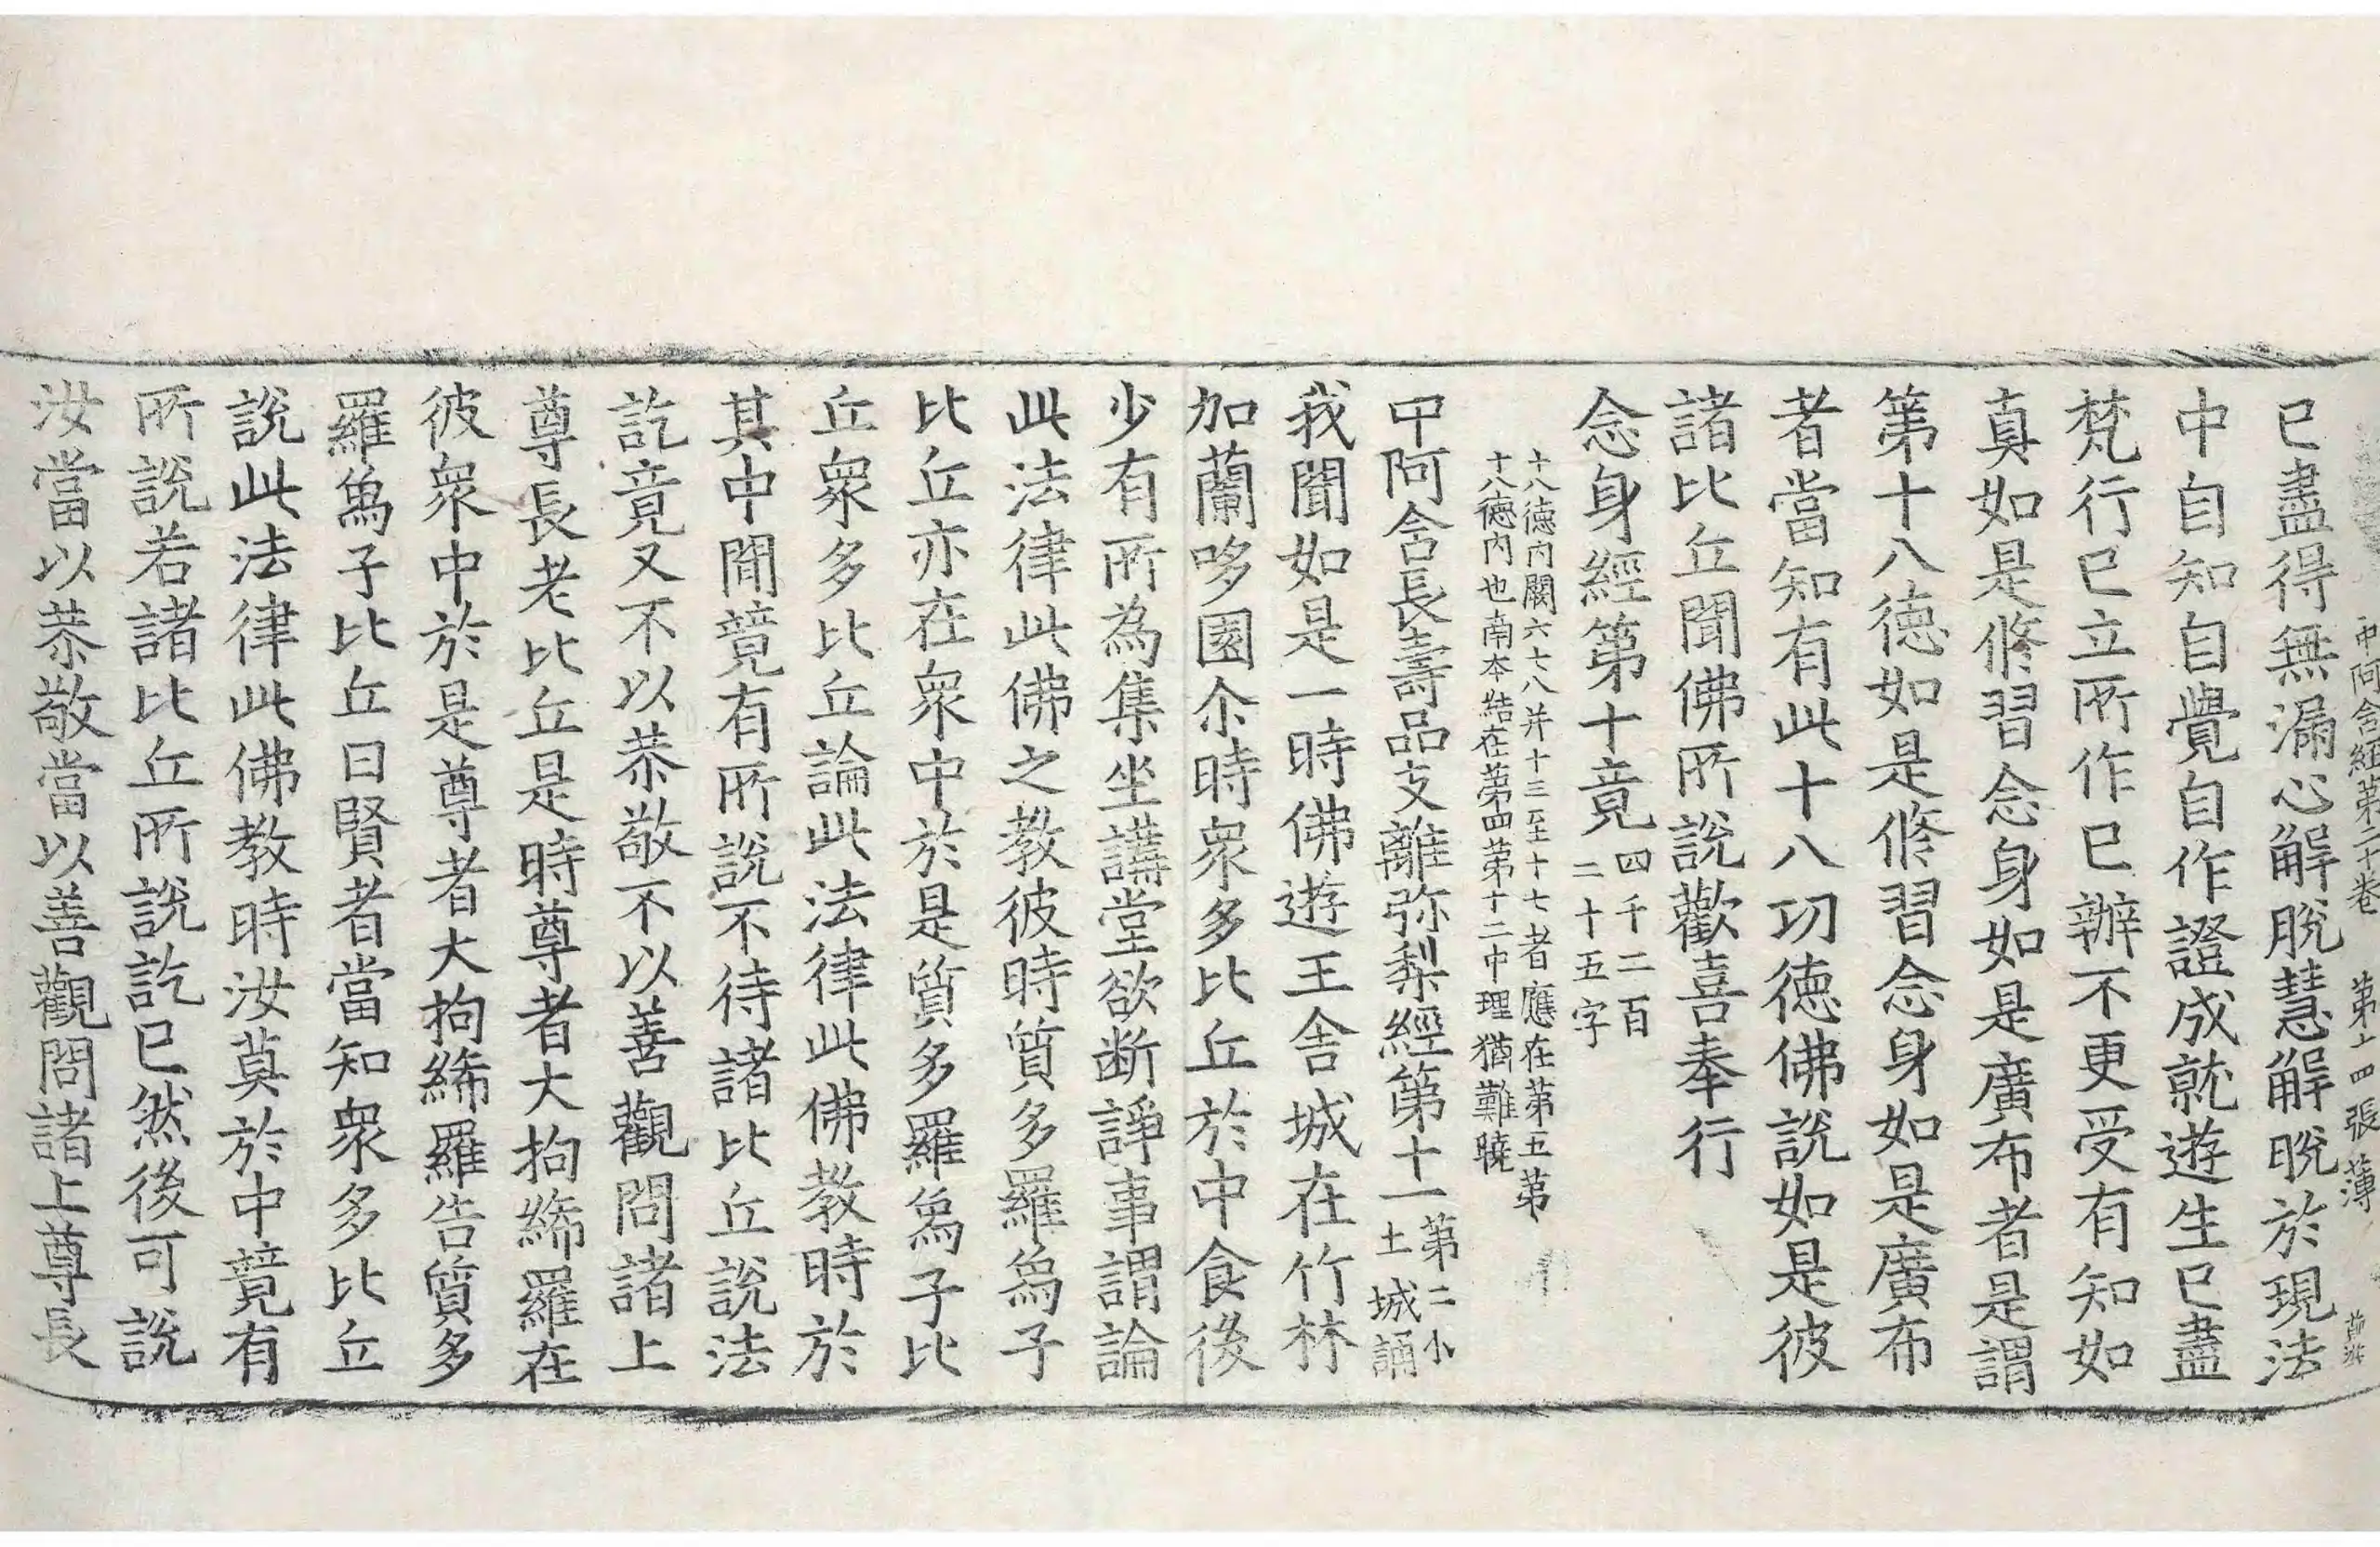 中阿含經第二十卷 第十四張 薄
已盡得無漏心解脫慧解脫於現法
中自知自覺自作證成就遊生已盡
梵行已立所作已辦不更受有知如
真如是修習念身如是廣布者是謂
第十八德如是修習念身如是廣布
者當知有此十八功德佛說如是彼
諸比丘聞佛所說歡喜奉行
念身經第十竟四千二百二十五字
十八德內闕六七八并十三至十七者應在第五第
十八德內也南本結在第四第十二中理猶難曉
中阿含長壽品支離弥梨經第十一第二小土城誦
我聞如是一時佛遊王舍城在竹林
加蘭哆園尒時衆多比丘於中食後
少有所為集坐講堂欲断諍事謂論
此法律此佛之教彼時質多羅爲子
比丘亦在衆中於是質多羅爲子比
丘衆多比丘論此法律此佛教時於
其中間競有所說不待諸比丘說法
訖竟又不以恭敬不以善觀問諸上
尊長老比丘是時尊者大拘絺羅在
彼衆中於是尊者大拘絺羅告質多
羅爲子比丘曰賢者當知衆多比丘
說此法律此佛教時汝莫於中競有
所說若諸比丘所說訖已然後可說
汝當以恭敬當以善觀問諸上尊長